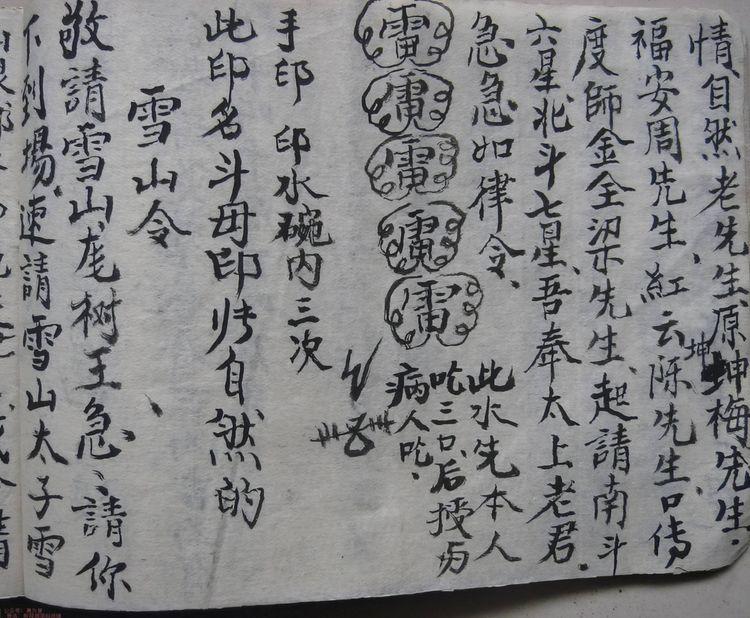 情、自然老先生、原坤梅先生、
福安周先生、紅云陈先生、口傅
坤
度師金全梁先生、起請南斗
六星北斗七星、吾奉太上老君、
急急如律令、
此水先本人
吃三口、后授与
病人吃、
手印 印水碗内三次
此印名斗母印 自然的
雪山令
敬請雪山 树王急、請你
下到場、速請雪山太子雪